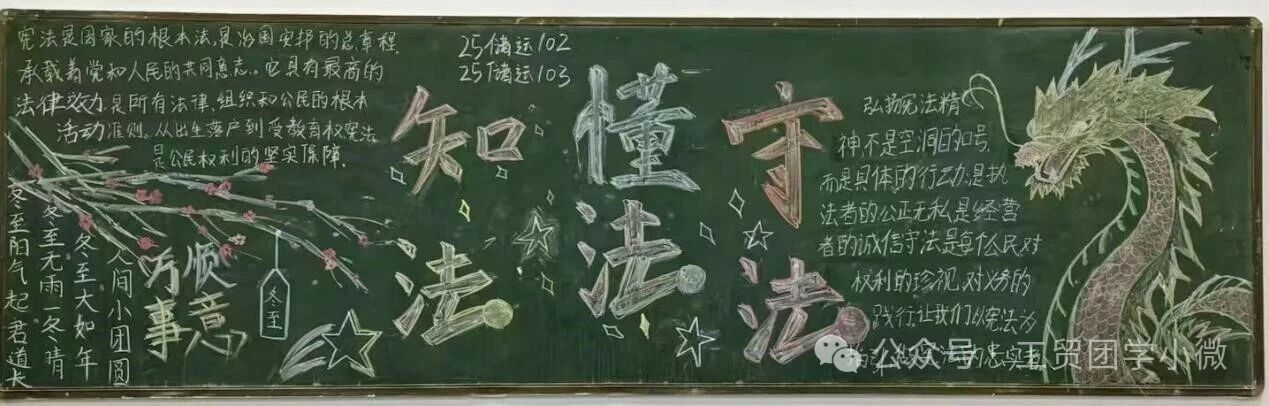 宪法是国家的根本法,是治国安邦的总章程,
承载着党和人民的共同意志。它具有最高的
法律效力,是所有法律,组织和公民的根本
活动准则。从出生落户到受教育权宪法
是公民权利的坚实保障.
25储运102
25储运103
知 懂 守
法。法。法。
弘扬宪法精
神不是空洞的口号,
而是具体的行动,是执
法者的公正无私是经营
者的诚信守法是每个人民对
权利的珍视,对义务的
践行让我们以宪法为
的忠实
冬至
万事
顺意
人间小团圆
冬至大如年
冬至无雨一冬晴
冬至阳气起君道长
公众号·工贸团学小微